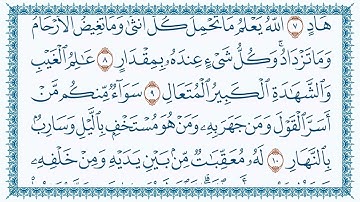 هَادٍ ٧ ٱللَّهُ يَعْلَمُ مَا تَحْمِلُ كُلُّ أُنثَىٰ وَمَا تَغِيضُ ٱلْأَرْحَامُ
وَمَا تَزْدَادُ ۖ وَكُلُّ شَىْءٍ عِندَهُۥ بِمِقْدَارٍ ٨ عَٰلِمُ ٱلْغَيْبِ
وَٱلشَّهَٰدَةِ ٱلْكَبِيرُ ٱلْمُتَعَالِ ٩ سَوَآءٌ مِّنكُم مَّنْ
أَسَرَّ ٱلْقَوْلَ وَمَن جَهَرَ بِهِۦ وَمَنْ هُوَ مُسْتَخْفٍۭ بِٱلَّيْلِ وَسَارِبٌۢ
بِٱلنَّهَارِ ١٠ لَهُۥ مُعَقِّبَٰتٌ مِّنۢ بَيْنِ يَدَيْهِ وَمِنْ خَلْفِهِۦ